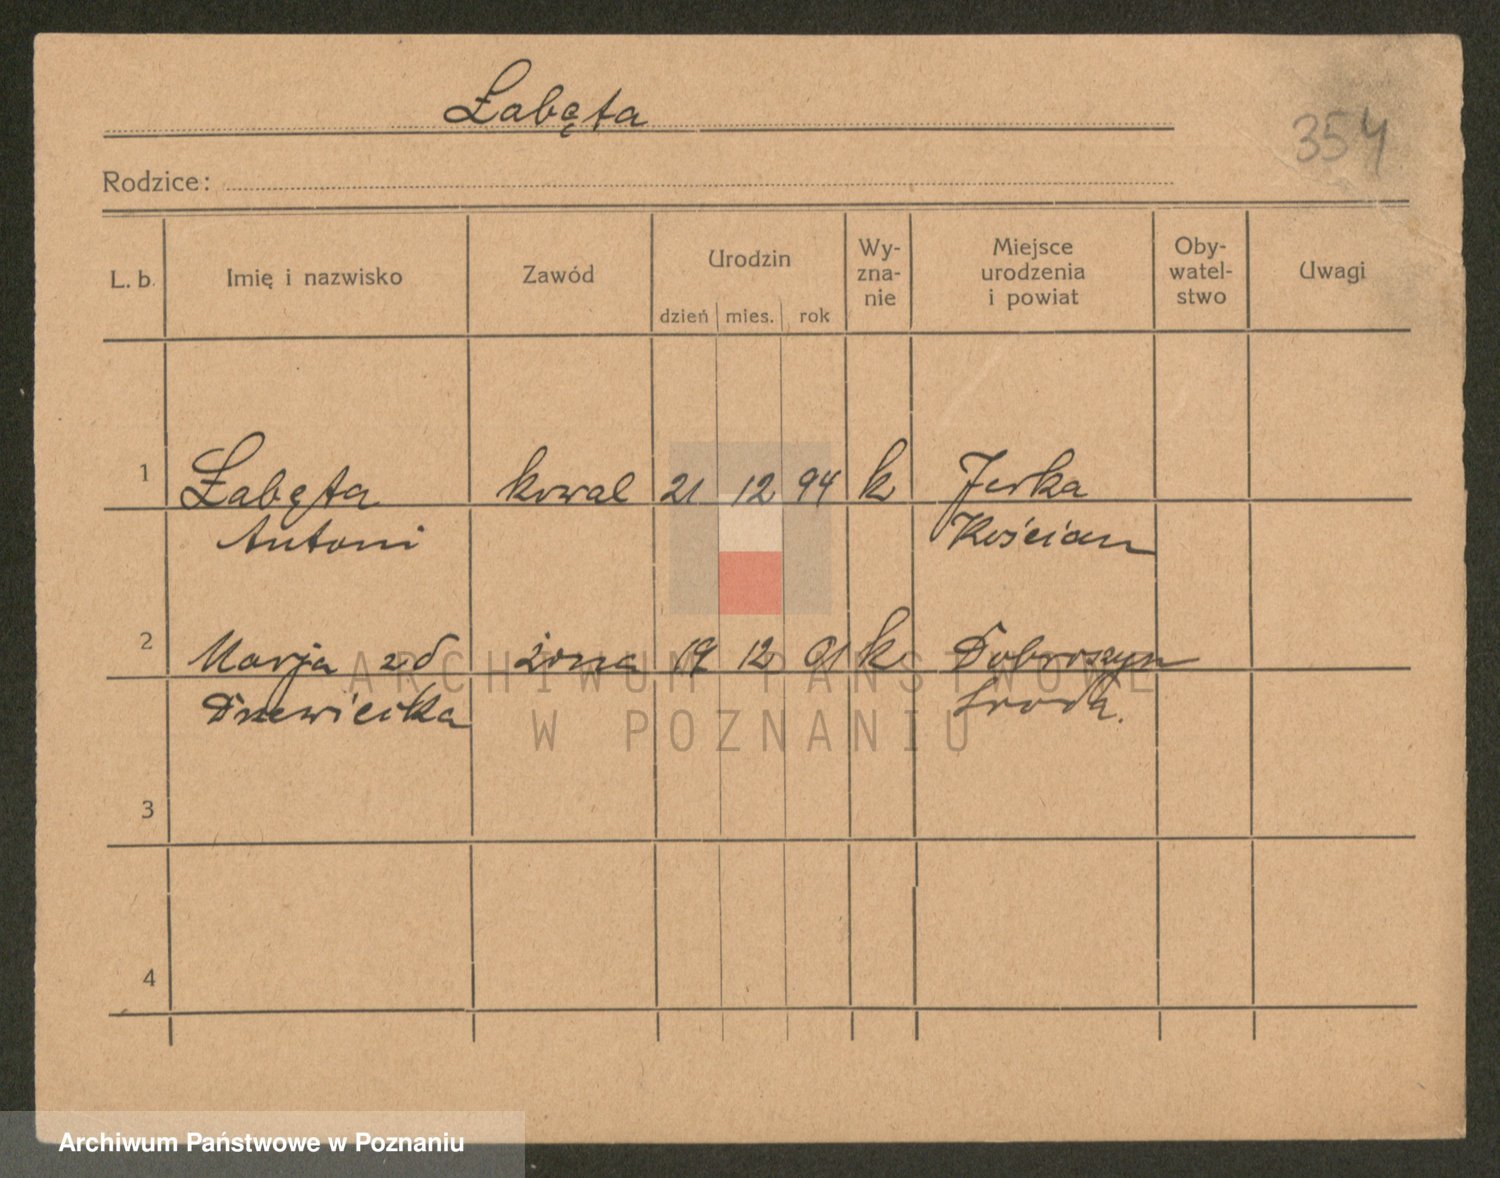 Łabęta
354
Rodzice:
L. b.
Imię i nazwisko
Zawód
Urodzin
dzień mies. rok
Wy-
zna-
nie
Miejsce
urodzenia
i powiat
Oby-
watel-
stwo
Uwagi
1 Łabęta kowal 21 12 94 k Jerka
Antoni Kościan
2 Marja zd żona 19 12 91 k Dobroszyn
Drzewiecka Środa.
3
4
ARCHIWUM PAŃSTWOWE
W POZNANIU
Archiwum Państwowe w Poznaniu